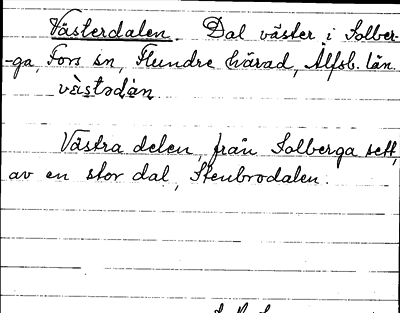 Västerdalen. Dal väster i Solber-
-ga, Fors sn, Flundre härad, Älfsb. län.
västədàn.
Västra delen, från Solberga sett,
av en stor dal, Stenbrodalen.